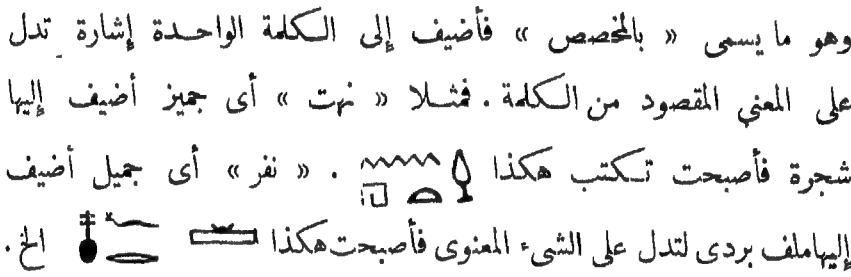 وهو ما يسمى « بالمخصص » فأضيف إلى الكلمة الواحدة إشارة تدل
على المعنى المقصود من الكلمة . فمثلا « نهت » أى جميز أضيف إليها
شجرة فأصبحت تكتب هكذا 𓈖𓉔𓏏𓆭 . « نفر » أى جميل أضيف
إليها ملف بردى لتدل على الشىء المعنوى فأصبحت هكذا 𓄤𓆑𓂋𓏛 الخ .